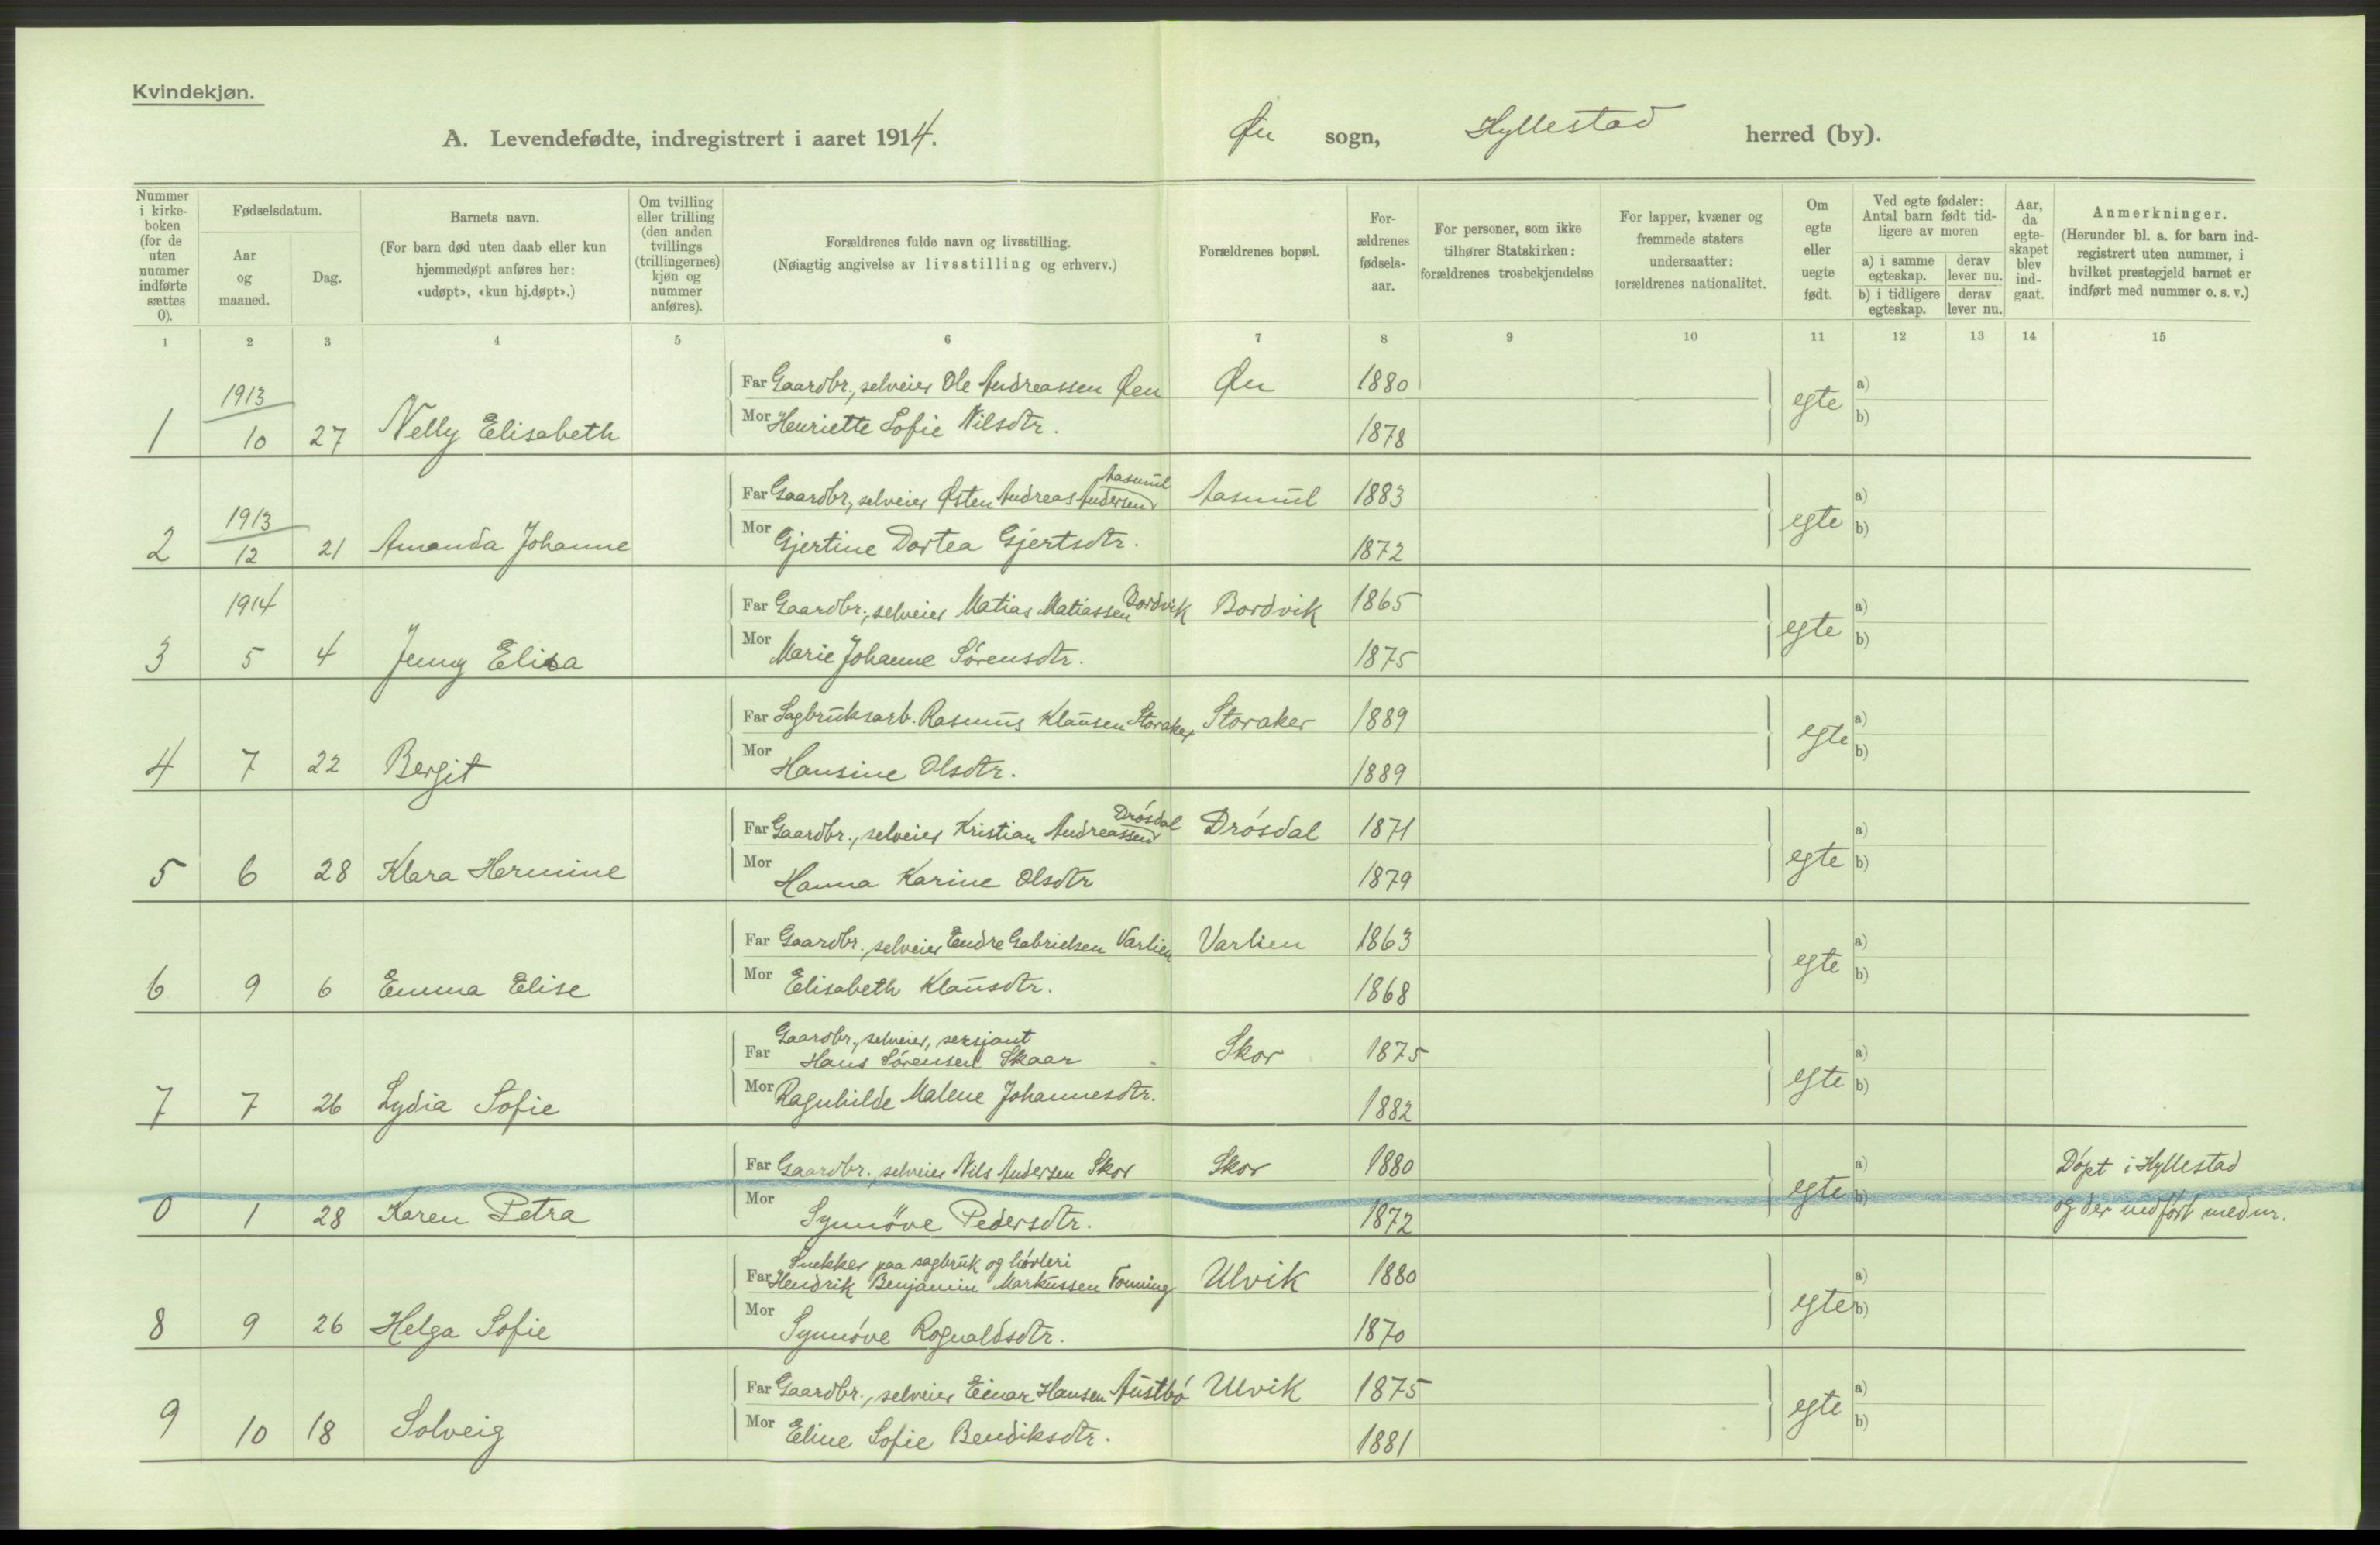 Kvindekjøn.
A. Levendefødte, indregistrert i aaret 1914. Øn sogn, Hyllestad herred (by).
Nummer i kirkeboken (for de uten nummer indførte sættes 0).
Fødselsdatum.
Aar og maaned.
Dag.
Barnets navn.
(For barn død uten daab eller kun hjemmedøpt anføres her: «udøpt», «kun hj.døpt».)
Om tvilling eller trilling (den anden tvillings (trillingernes) kjøn og nummer anføres).
Forældrenes fulde navn og livsstilling.
(Nøiagtig angivelse av livsstilling og erhverv.)
Forældrenes bopæl.
For-ældrenes fødsels-aar.
For personer, som ikke tilhører Statskirken: forældrenes trosbekjendelse
For lapper, kvæner og fremmede staters undersaatter: forældrenes nationalitet.
Om egte eller uegte født.
Ved egte fødsler: Antal barn født tid-ligere av moren
a) i samme egteskap. derav lever nu.
b) i tidligere egteskap. derav lever nu.
Aar, da egte-skapet blev ind-gaat.
Anmerkninger.
(Herunder bl. a. for barn ind-registrert uten nummer, i hvilket prestegjeld barnet er indført med nummer o. s. v.)
1 2 3 4 5 6 7 8 9 10 11 12 13 14 15
1913
Far Gaardbr., selveier Ole Andreassen Øen Øn 1880 egte a) b)
1 10 27 Nelly Elisabeth Mor Henriette Sofie Nilsdtr. 1878
1913
Far Gaardbr., selveier Østen Andreas Andersen Aasmul Aasmul 1883 egte a) b)
2 12 21 Amanda Johanne Mor Gjertine Dortea Gjertsdtr. 1872
1914
Far Gaardbr., selveier Matias Matiassen Bordvik Bordvik 1865 egte a) b)
3 5 4 Jenny Elisa Mor Marie Johanne Sørensdtr. 1875
Far Sagbruksarb. Rasmus Klausen Storaker Storaker 1889 egte a) b)
4 7 22 Bergit Mor Hansine Olsdtr. 1889
Far Gaardbr., selveier Kristian Andreassen Drósdal Drósdal 1871 egte a) b)
5 6 28 Klara Hermine Mor Hanna Karine Olsdtr 1879
Far Gaardbr. selveier Endre Gabrielsen Varlien Varlien 1863 egte a) b)
6 9 6 Emma Elise Mor Elisabeth Klausdtr. 1868
Gaardbr., selveier, sersjant
Far Hans Sørensen Skaar Skor 1875 egte a) b)
7 7 26 Lydia Sofie Mor Ragnhilde Malene Johannesdtr. 1882
Far Gaardbr., selveier Nils Andersen Skor Skor 1880 egte a) b) Døpt i Hyllestad
0 1 28 Karen Petra Mor Synnöve Pedersdtr. 1872 og der indført med nr.
Snekker paa sagbruk og hövleri
Far Hendrik Benjamin Markussen Fonning Ulvik 1880 egte a) b)
8 9 26 Helga Sofie Mor Synnóve Rognaldsdtr. 1870
Far Gaardbr., selveier Einar Hansen Austbó Ulvik 1875 egte a) b)
9 10 18 Solveig Mor Eline Sofie Bendiksdtr. 1881